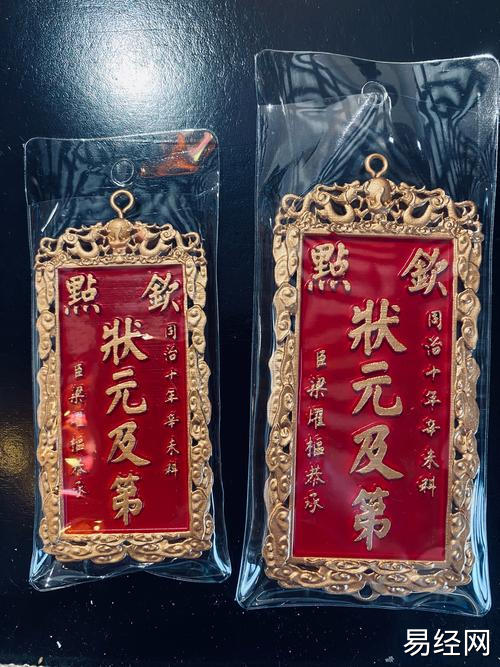 欽點
同治十年辛未科
狀元及第
臣梁耀樞恭承
欽點
同治十年辛未科
狀元及第
臣梁耀樞恭承
易经网